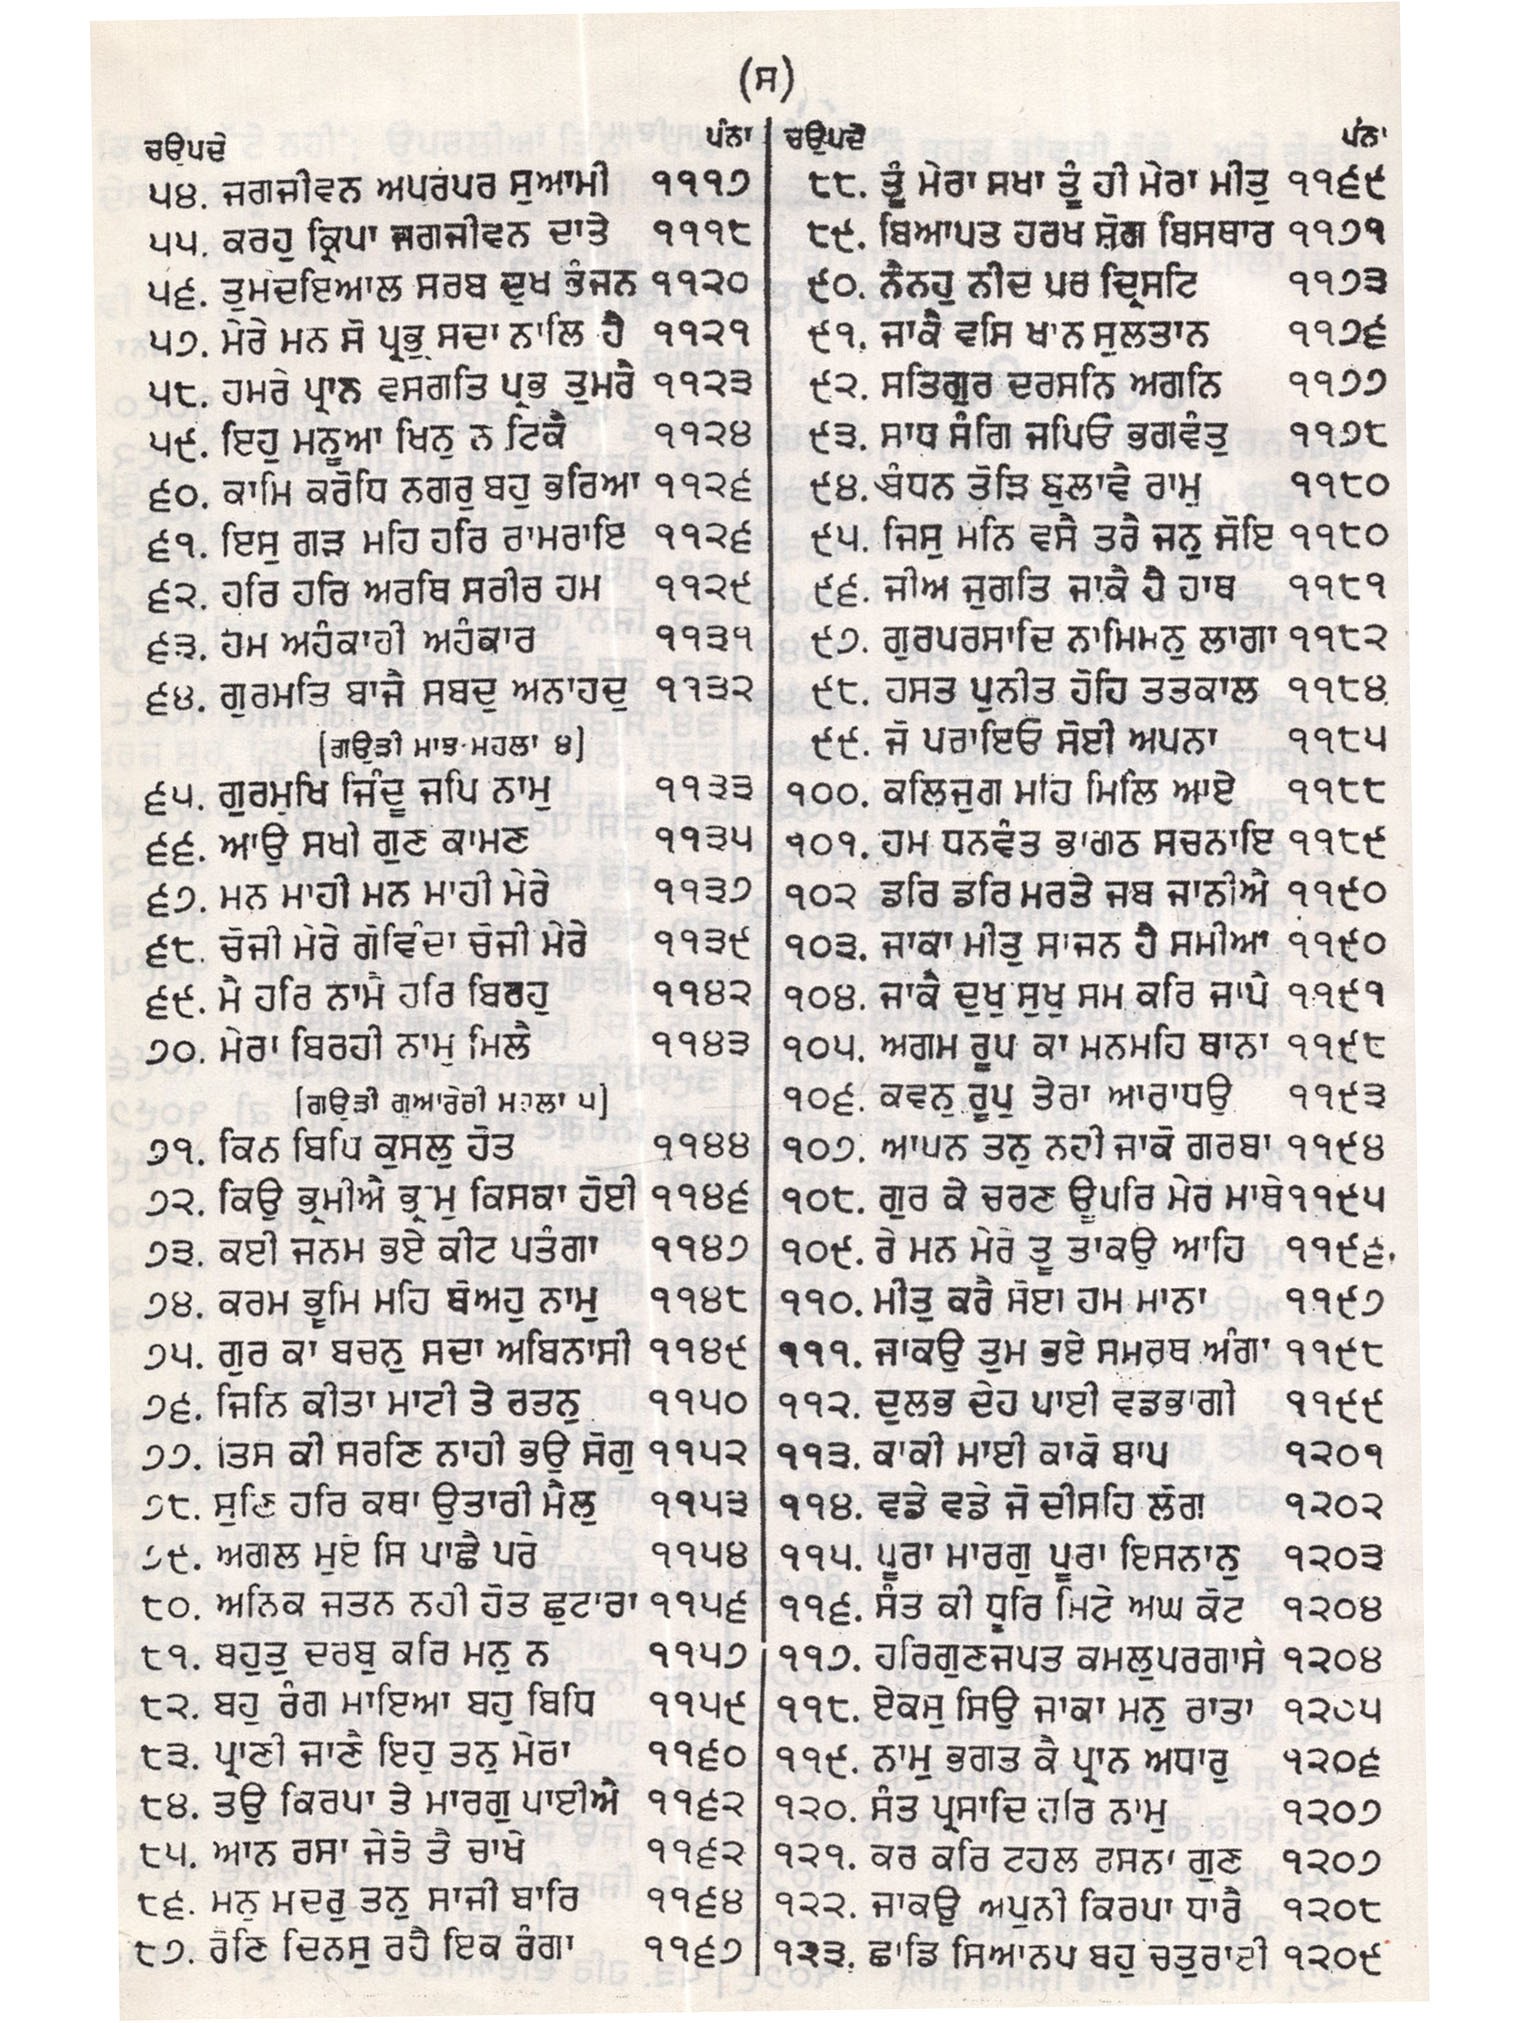 (ਸ)
ਚਉਪਦੇ ਪੰਨਾ
੫੪. ਜਗਜੀਵਨ ਅਪਰੰਪਰ ਸੁਆਮੀ ੧੧੧੭
੫੫. ਕਰਹੁ ਕ੍ਰਿਪਾ ਜਗਜੀਵਨ ਦਾਤੇ ੧੧੧੮
੫੬. ਤੁਮਦਇਆਲ ਸਰਬ ਦੁਖ ਭੰਜਨ ੧੧੨੦
੫੭. ਮੇਰੇ ਮਨ ਸੋ ਪ੍ਰਭੁ ਸਦਾ ਨਾਲਿ ਹੈ ੧੧੨੧
੫੮. ਹਮਰੇ ਪ੍ਰਾਨ ਵਸਗਤਿ ਪ੍ਰਭ ਤੁਮਰੈ ੧੧੨੩
੫੯. ਇਹੁ ਮਨੂਆ ਖਿਨੁ ਨ ਟਿਕੈ ੧੧੨੪
੬੦. ਕਾਮਿ ਕਰੋਧਿ ਨਗਰੁ ਬਹੁ ਭਰਿਆ ੧੧੨੬
੬੧. ਇਸੁ ਗੜ ਮਹਿ ਹਰਿ ਰਾਮਰਾਇ ੧੧੨੬
੬੨. ਹਰਿ ਹਰਿ ਅਰਥਿ ਸਰੀਰ ਹਮ ੧੧੨੯
੬੩. ਹਮ ਅਹੰਕਾਰੀ ਅਹੰਕਾਰ ੧੧੩੧
੬੪. ਗੁਰਮਤਿ ਬਾਜੈ ਸਬਦੁ ਅਨਾਹਦੁ ੧੧੩੨
[ਗਉੜੀ ਮਾਝ ਮਹਲਾ ੪]
੬੫. ਗੁਰਮੁਖਿ ਜਿੰਦੂ ਜਪਿ ਨਾਮੁ ੧੧੩੩
੬੬. ਆਉ ਸਖੀ ਗੁਣ ਕਾਮਣ ੧੧੩੫
੬੭. ਮਨ ਮਾਹੀ ਮਨ ਮਾਹੀ ਮੇਰੇ ੧੧੩੭
੬੮. ਚੋਜੀ ਮੇਰੇ ਗੋਵਿੰਦਾ ਚੋਜੀ ਮੇਰੇ ੧੧੩੯
੬੯. ਮੈ ਹਰਿ ਨਾਮੈ ਹਰਿ ਬਿਰਹੁ ੧੧੪੨
੭੦. ਮੇਰਾ ਬਿਰਹੀ ਨਾਮੁ ਮਿਲੈ ੧੧੪੩
[ਗਉੜੀ ਗੁਆਰੇਰੀ ਮਹਲਾ ੫]
੭੧. ਕਿਨ ਬਿਧਿ ਕੁਸਲੁ ਹੋਤ ੧੧੪੪
੭੨. ਕਿਉ ਭ੍ਰਮੀਐ ਭ੍ਰਮੁ ਕਿਸਕਾ ਹੋਈ ੧੧੪੬
੭੩. ਕਈ ਜਨਮ ਭਏ ਕੀਟ ਪਤੰਗਾ ੧੧੪੭
੭੪. ਕਰਮ ਭੂਮਿ ਮਹਿ ਬੋਅਹੁ ਨਾਮੁ ੧੧੪੮
੭੫. ਗੁਰ ਕਾ ਬਚਨੁ ਸਦਾ ਅਬਿਨਾਸੀ ੧੧੪੯
੭੬. ਜਿਨਿ ਕੀਤਾ ਮਾਟੀ ਤੇ ਰਤਨੁ ੧੧੫੦
੭੭. ਤਿਸ ਕੀ ਸਰਣਿ ਨਾਹੀ ਭਉ ਸੋਗੁ ੧੧੫੨
੭੮. ਸੁਣਿ ਹਰਿ ਕਥਾ ਉਤਾਰੀ ਮੈਲੁ ੧੧੫੩
੭੯. ਅਗਲ ਮੁਏ ਸਿ ਪਾਛੈ ਪਰੇ ੧੧੫੪
੮੦. ਅਨਿਕ ਜਤਨ ਨਹੀ ਹੋਤ ਛੁਟਾਰਾ ੧੧੫੬
੮੧. ਬਹੁਤੁ ਦਰਬੁ ਕਰਿ ਮਨੁ ਨ ੧੧੫੭
੮੨. ਬਹੁ ਰੰਗ ਮਾਇਆ ਬਹੁ ਬਿਧਿ ੧੧੫੯
੮੩. ਪ੍ਰਾਣੀ ਜਾਣੈ ਇਹੁ ਤਨੁ ਮੇਰਾ ੧੧੬੦
੮੪. ਤਉ ਕਿਰਪਾ ਤੇ ਮਾਰਗੁ ਪਾਈਐ ੧੧੬੨
੮੫. ਆਨ ਰਸਾ ਜੇਤੇ ਤੈ ਚਾਖੇ ੧੧੬੨
੮੬. ਮਨੁ ਮਦਰੁ ਤਨੁ ਸਾਜੀ ਬਾਰਿ ੧੧੬੪
੮੭. ਰੈਣਿ ਦਿਨਸੁ ਰਹੈ ਇਕ ਰੰਗਾ ੧੧੬੭
ਚਉਪਦੇ ਪੰਨਾ
੮੮. ਤੂੰ ਮੇਰਾ ਸਖਾ ਤੂੰ ਹੀ ਮੇਰਾ ਮੀਤੁ ੧੧੬੯
੮੯. ਬਿਆਪਤ ਹਰਖ ਸੋਗ ਬਿਸਥਾਰ ੧੧੭੧
੯੦. ਨੈਨਹੁ ਨੀਦ ਪਰ ਦ੍ਰਿਸਟਿ ੧੧੭੩
੯੧. ਜਾਕੈ ਵਸਿ ਖਾਨ ਸੁਲਤਾਨ ੧੧੭੬
੯੨. ਸਤਿਗੁਰ ਦਰਸਨਿ ਅਗਨਿ ੧੧੭੭
੯੩. ਸਾਧ ਸੰਗਿ ਜਪਿਓ ਭਗਵੰਤੁ ੧੧੭੮
੯੪. ਬੰਧਨ ਤੋੜਿ ਬੁਲਾਵੈ ਰਾਮੁ ੧੧੮੦
੯੫. ਜਿਸੁ ਮਨਿ ਵਸੈ ਤਰੈ ਜਨੁ ਸੋਇ ੧੧੮੦
੯੬. ਜੀਅ ਜੁਗਤਿ ਜਾਕੈ ਹੈ ਹਾਥ ੧੧੮੧
੯੭. ਗੁਰਪਰਸਾਦਿ ਨਾਮਿਮਨੁ ਲਾਗਾ ੧੧੮੨
੯੮. ਹਸਤ ਪੁਨੀਤ ਹੋਹਿ ਤਤਕਾਲ ੧੧੮੪
੯੯. ਜੋ ਪਰਾਇਓ ਸੋਈ ਅਪਨਾ ੧੧੮੫
੧੦੦. ਕਲਿਜੁਗ ਮਹਿ ਮਿਲਿ ਆਏ ੧੧੮੮
੧੦੧. ਹਮ ਧਨਵੰਤ ਭਾਗਠ ਸਚਨਾਇ ੧੧੮੯
੧੦੨ ਡਰਿ ਡਰਿ ਮਰਤੇ ਜਬ ਜਾਨੀਐ ੧੧੯੦
੧੦੩. ਜਾਕਾ ਮੀਤੁ ਸਾਜਨ ਹੈ ਸਮੀਆ ੧੧੯੦
੧੦੪. ਜਾਕੈ ਦੁਖੁ ਸੁਖੁ ਸਮ ਕਰਿ ਜਾਪੈ ੧੧੯੧
੧੦੫. ਅਗਮ ਰੂਪ ਕਾ ਮਨਮਹਿ ਥਾਨਾ ੧੧੯੮
੧੦੬. ਕਵਨੁ ਰੂਪੁ ਤੇਰਾ ਆਰਾਧਉ ੧੧੯੩
੧੦੭. ਆਪਨ ਤਨੁ ਨਹੀ ਜਾਕੋ ਗਰਬਾ ੧੧੯੪
੧੦੮. ਗੁਰ ਕੇ ਚਰਣ ਊਪਰਿ ਮੇਰ ਮਾਥੇ ੧੧੯੫
੧੦੯. ਰੇ ਮਨ ਮੇਰੇ ਤੂ ਤਾਕਉ ਆਹਿ ੧੧੯੬.
੧੧੦. ਮੀਤੁ ਕਰੈ ਸੋਈ ਹਮ ਮਾਨਾ ੧੧੯੭
੧੧੧. ਜਾਕਉ ਤੁਮ ਭਏ ਸਮਰਥ ਅੰਗਾ ੧੧੯੮
੧੧੨. ਦੁਲਭ ਦੇਹ ਪਾਈ ਵਡਭਾਗੀ ੧੧੯੯
੧੧੩. ਕਾਕੀ ਮਾਈ ਕਾਕੋ ਬਾਪ ੧੨੦੧
੧੧੪. ਵਡੇ ਵਡੇ ਜੋ ਦੀਸਹਿ ਲੋਗ ੧੨੦੨
੧੧੫. ਪੂਰਾ ਮਾਰਗੁ ਪੂਰਾ ਇਸਨਾਨੁ ੧੨੦੩
੧੧੬. ਸੰਤ ਕੀ ਧੂਰਿ ਮਿਟੇ ਅਘ ਕੋਟ ੧੨੦੪
੧੧੭. ਹਰਿਗੁਣਜਪਤ ਕਮਲੁਪਰਗਾਸੇ ੧੨੦੪
੧੧੮. ਏਕਸੁ ਸਿਉ ਜਾਕਾ ਮਨੁ ਰਾਤਾ ੧੨੦੫
੧੧੯. ਨਾਮੁ ਭਗਤ ਕੈ ਪ੍ਰਾਨ ਅਧਾਰੁ ੧੨੦੬
੧੨੦. ਸੰਤ ਪ੍ਰਸਾਦਿ ਹਰਿ ਨਾਮੁ ੧੨੦੭
੧੨੧. ਕਰ ਕਰਿ ਟਹਲ ਰਸਨਾ ਗੁਣ ੧੨੦੭
੧੨੨. ਜਾਕਉ ਅਪੁਨੀ ਕਿਰਪਾ ਧਾਰੈ ੧੨੦੮
੧੨੩. ਛਾਡਿ ਸਿਆਨਪ ਬਹੁ ਚਤੁਰਾਈ ੧੨੦੯